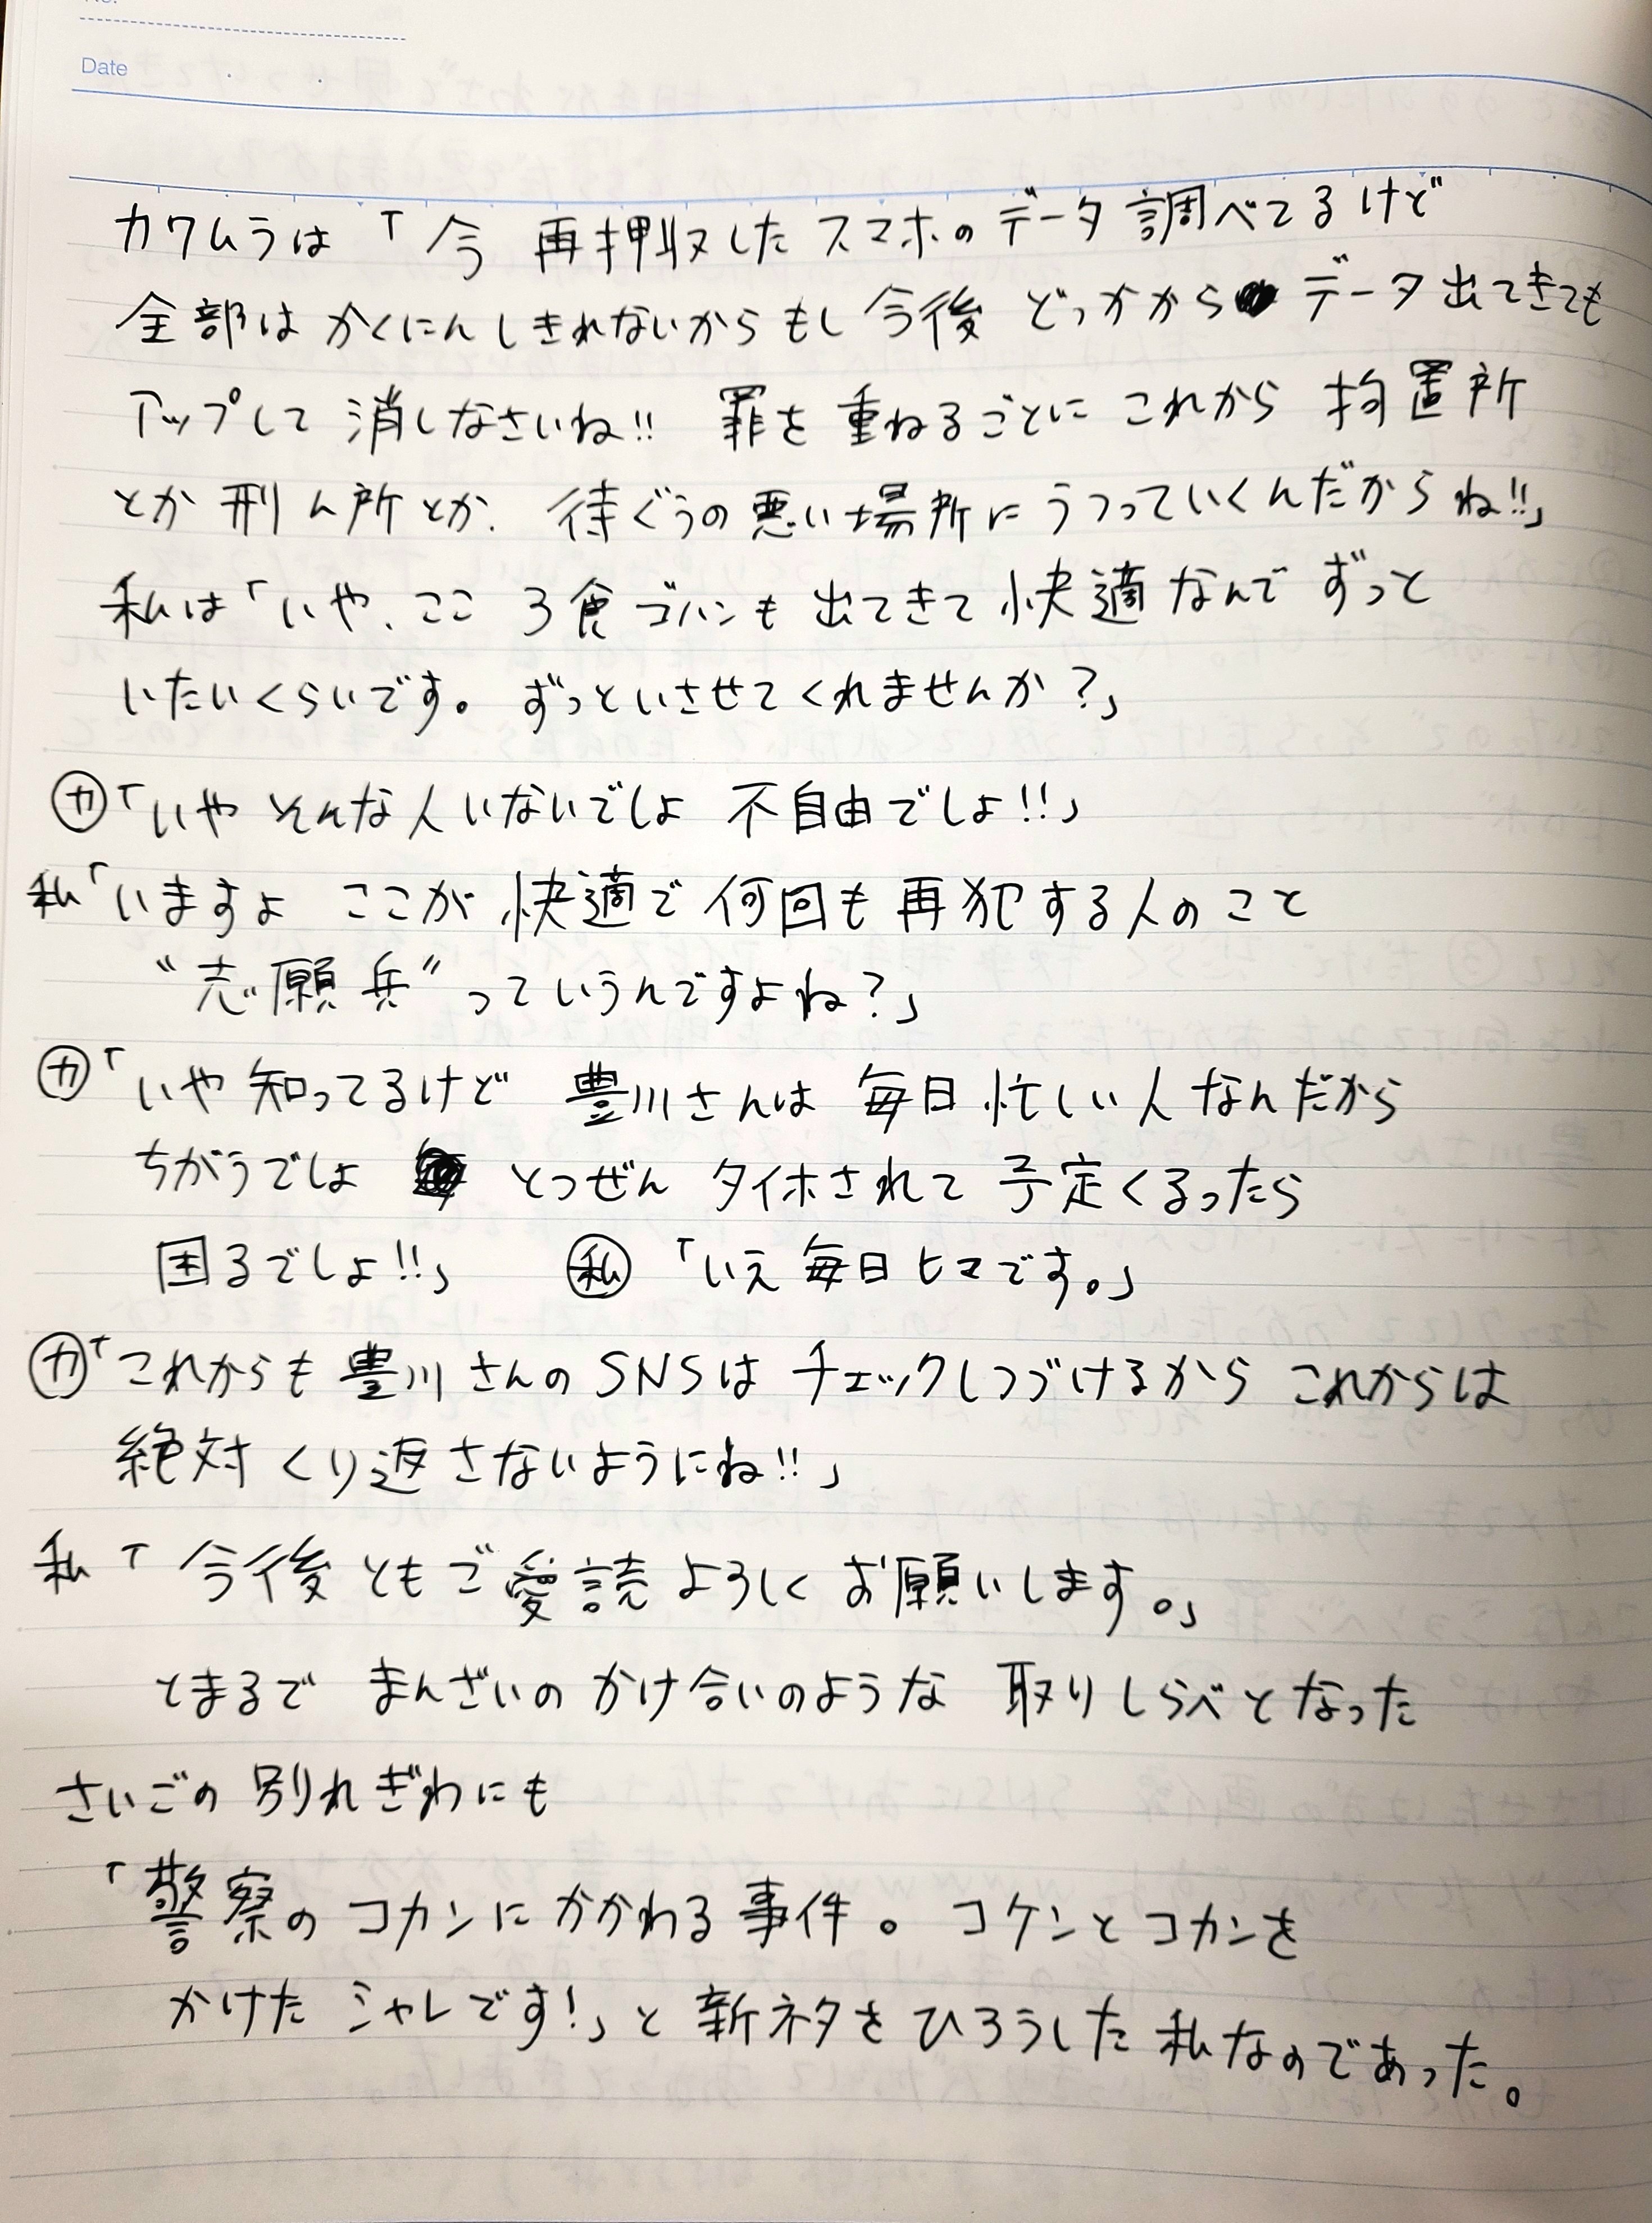 Date
カワムラは「今 再押収した スマホの データ 調べてるけど
全部は かくにん しきれないから もし 今後 どっかから データ 出てきても
アップして 消しなさいね!! 罪を 重ねるごとに これから 拘置所
とか 刑ム所とか、待ぐうの 悪い場所に うつっていくんだからね!!」
私は「いや、ここ 3食 ゴハンも 出てきて 快適なんで ずっと
いたいくらいです。ずっといさせてくれませんか?」
㋕「いや そんな人いないでしょ 不自由でしょ!!」
私「いますよ ここが 快適で 何回も 再犯する人のこと
“志願兵”っていうんですよね?」
㋕「いや 知ってるけど 豊川さんは 毎日 忙しい人 なんだから
ちがうでしょ とつぜん タイホされて 予定くるったら
困るでしょ!!」 ㊙私 「いえ 毎日ヒマです。」
㋕「これからも 豊川さんの SNSは チェックしつづけるから これからは
絶対 くり返さないようにね!!」
私「今後ともご愛読よろしく お願いします。」
とまるで まんざいの かけ合いのような 取りしらべとなった
さいごの 別れぎわにも
「警察の コカンに かかわる 事件。コケンと コカンを
かけた シャレです!」と 新ネタを ひろうした 私なのであった。